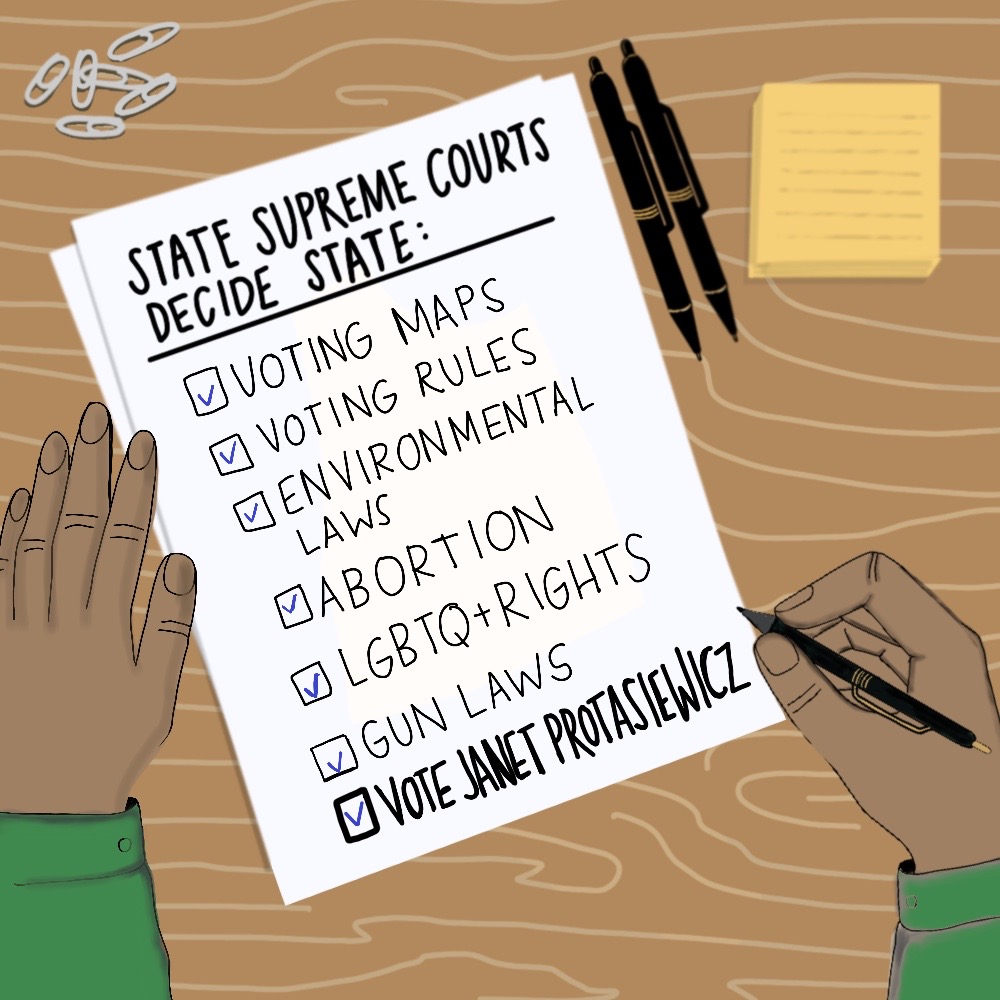 STATE SUPREME COURTS
DECIDE STATE:
VOTING MAPS
VOTING RULES
ENVIRONMENTAL
LAWS
ABORTION
LGBTQ+RIGHTS
GUN LAWS
VOTE JANET PROTASIEWICZ